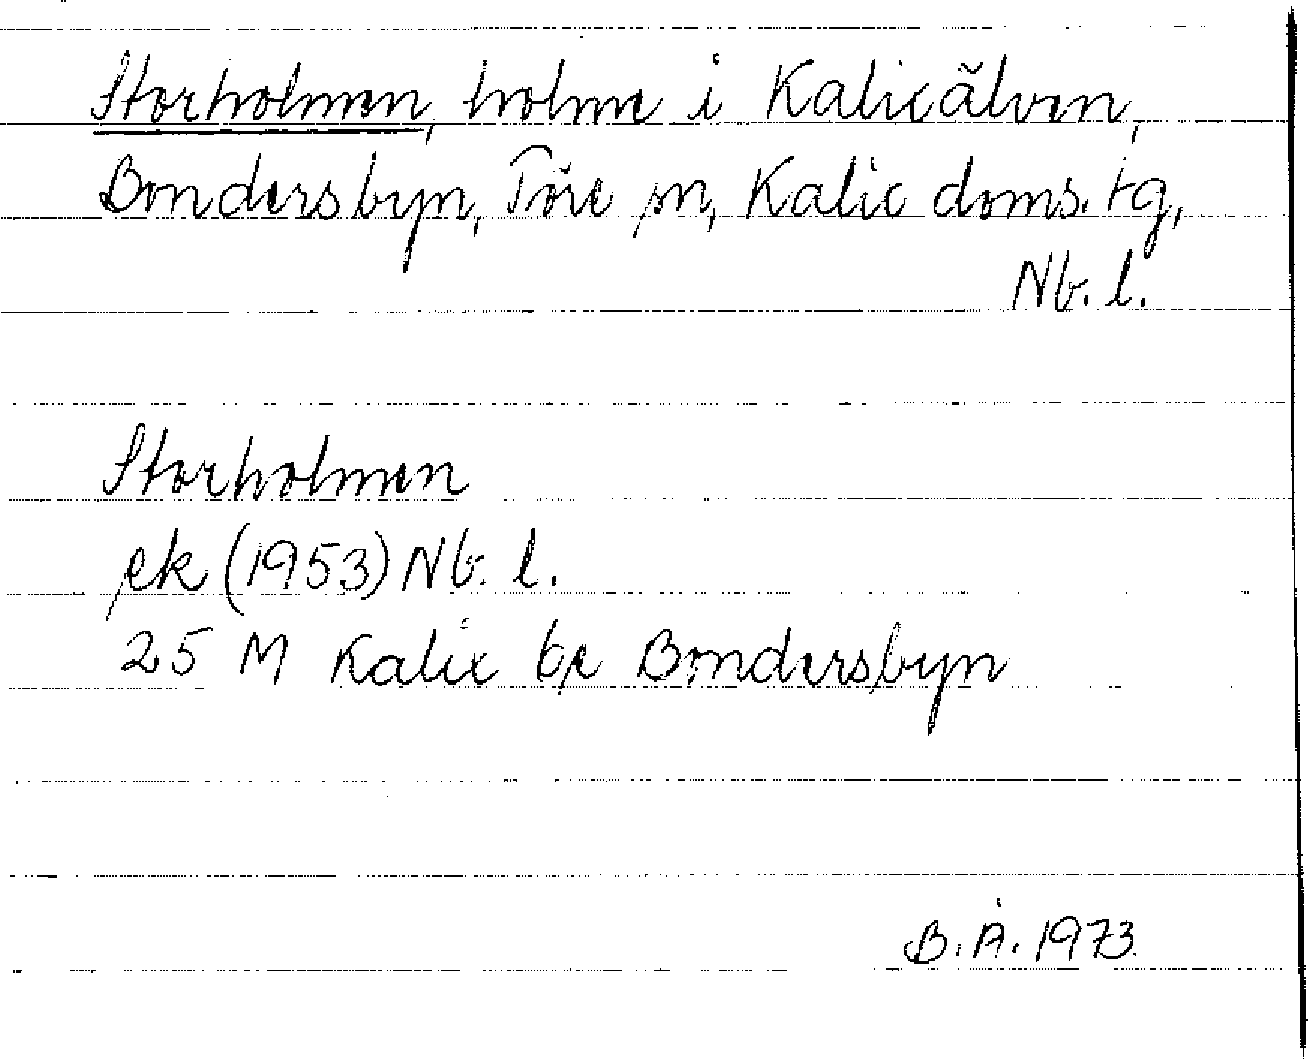 Storholmen, holme i Kalixälven,
Bondersbyn, Töre sn, Kalix doms. tg,
Nb. l.
Storholmen
ek (1953) Nb. l.
25 M Kalix bl Bondersbyn
B. Å. 1973